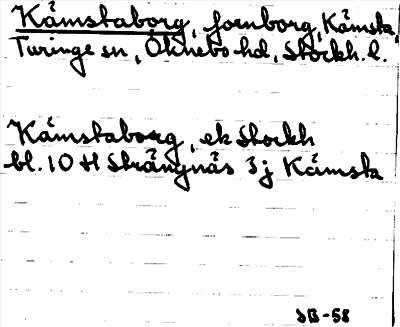 Kämstaborg, fornborg, Kämsta,
Turinge sn, Öknebo hd, Stockh. l.
Kämstaborg, ek Stockh
bl. 10 H Strängnäs 3j Kämsta
SB-58